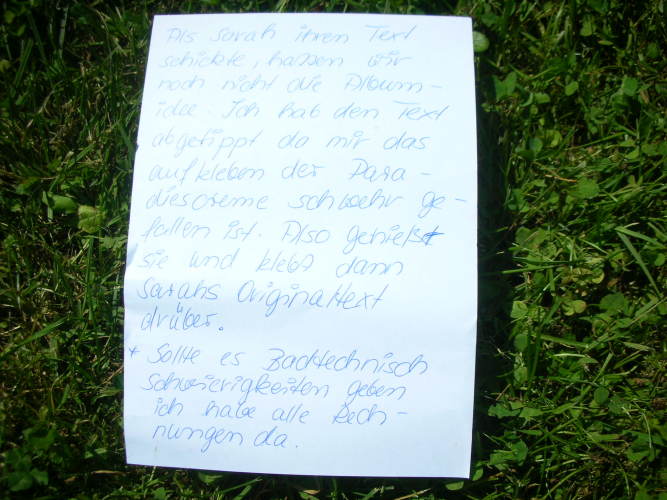 Als Sarah ihren Text
schickte, hatten wir
noch nicht die Album-
idee. Ich hab den Text
abgetippt da mir das
aufkleben der Para-
diescreme schwehr ge-
fallen ist. Also genießt
sie und klebt dann
Sarahs Originaltext
drüber.
* Sollte es Backtechnisch
Schwierigkeiten geben
ich habe alle Rech-
nungen da.